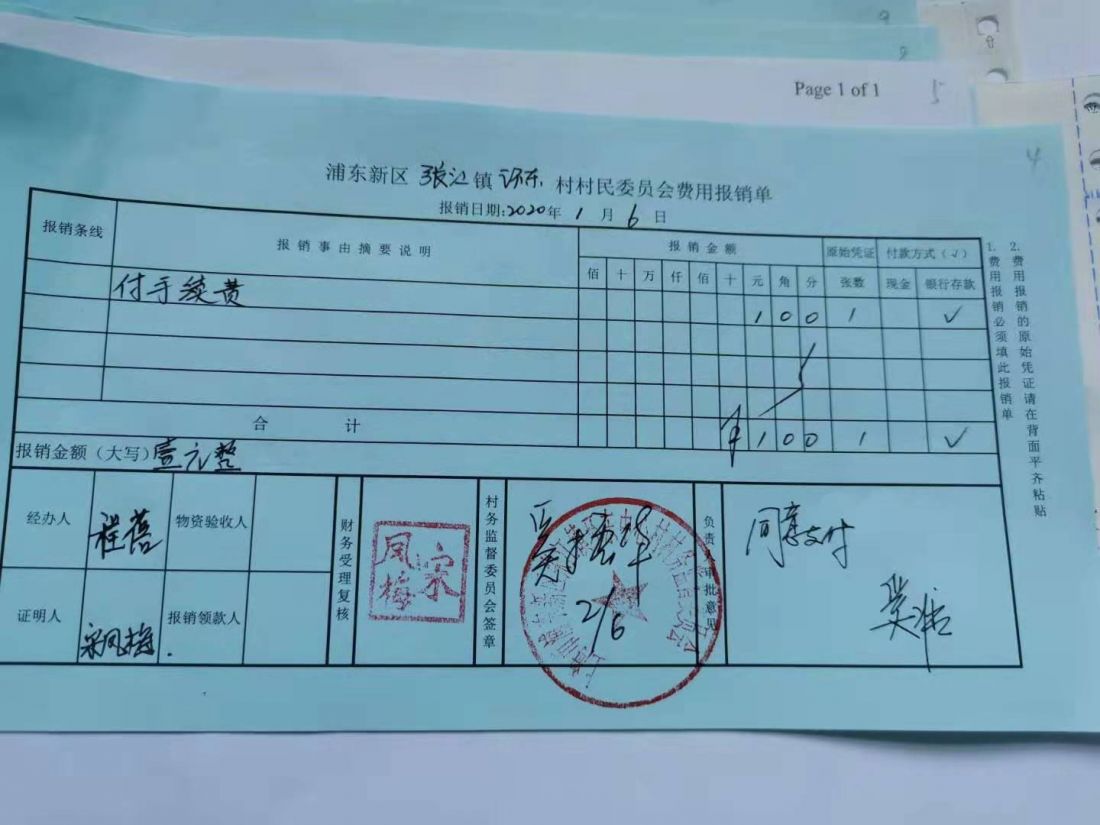 Page 1 of 1
5
4
浦东新区 张江 镇 环东 村村民委员会费用报销单
报销日期:2020年 1 月 6 日
报销条线 报销事由摘要说明 报销金额 原始凭证 付款方式(√)
佰 十 万 仟 佰 十 元 角 分 张数 现金 银行存款
付手续费 1 0 0 1 √
合 计 ¥ 1 0 0 1 √
报销金额(大写)壹元整
经办人 程蓓 物资验收人
证明人 宋凤梅 报销领款人
财务受理复核
凤梅 宋
村务监督委员会签章
2/6
负责人审批意见
同意支付
1. 费用报销必须填此报销单
2. 费用报销的原始凭证请在背面平齐粘贴